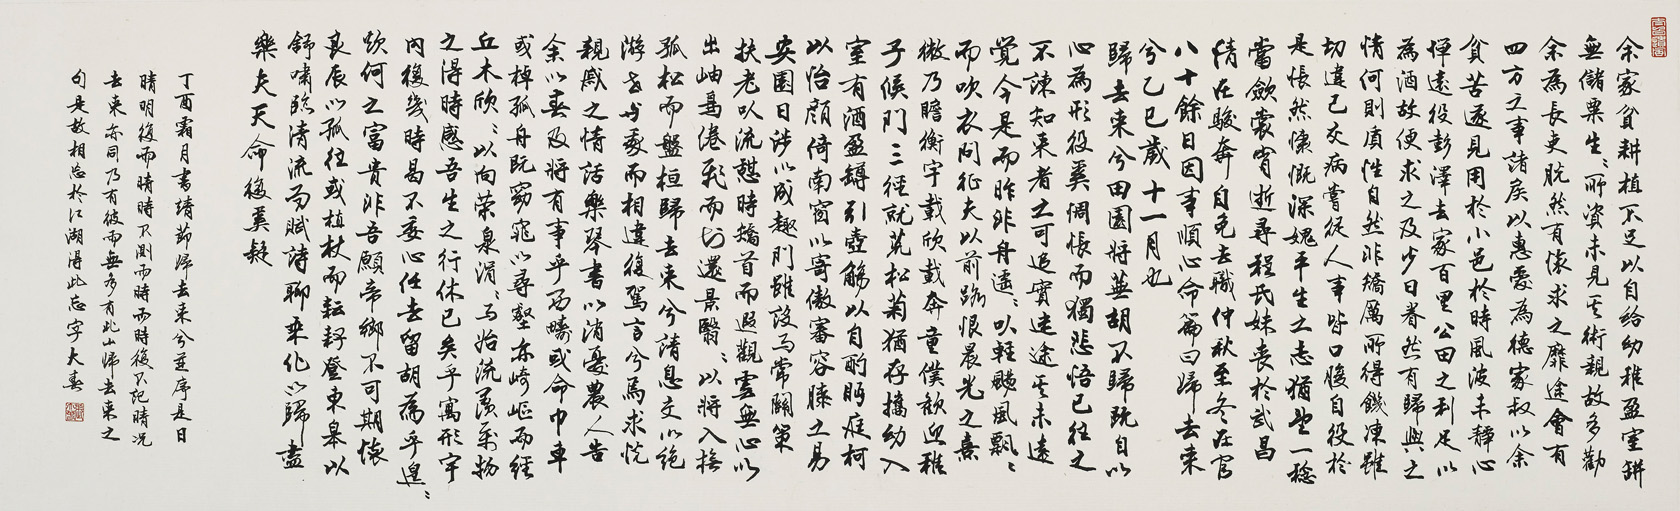 余家貧耕植不足以自給幼稚盈室缾
無儲粟生〻所資未見其術親故多勸
余為長吏脫然有懷求之靡途會有
四方之事諸侯以惠愛為德家叔以余
貧苦遂見用於小邑於時風波未靜心
憚遠役彭澤去家百里公田之利足以
為酒故便求之及少日眷然有歸與之
情何則質性自然非矯厲所得饑凍雖
切違己交病嘗從人事皆口腹自役於
是悵然慷慨深媿平生之志猶望一稔
當斂裳宵逝尋程氏妹喪於武昌
情在駿奔自免去職仲秋至冬在官
八十餘日因事順心命篇曰歸去來
兮乙巳歲十一月也
歸去來兮田園將蕪胡不歸既自以
心為形役奚惆悵而獨悲悟已往之
不諫知來者之可追實迷途其未遠
覺今是而昨非舟遙〻以輕颺風飄〻
而吹衣問征夫以前路恨晨光之熹
微乃瞻衡宇載欣載奔童僕歡迎稚
子候門三徑就荒松菊猶存攜幼入
室有酒盈罇引壺觴以自酌眄庭柯
以怡顏倚南窗以寄傲審容膝之易
安園日涉以成趣門雖設而常關策
扶老以流憩時矯首而遐觀雲無心以
出岫鳥倦飛而知還景翳〻以將入撫
孤松而盤桓歸去來兮請息交以絕
游世與我而相違復駕言兮焉求悅
親戚之情話樂琴書以消憂農人告
余以春及將有事乎西疇或命巾車
或棹孤舟既窈窕以尋壑亦崎嶇而經
丘木欣〻以向榮泉涓〻而始流羨萬物
之得時感吾生之行休已矣乎寓形宇
內復幾時曷不委心任去留胡為乎遑〻
欲何之富貴非吾願帝鄉不可期懷
良辰以孤往或植杖而耘耔登東皋以
舒嘯臨清流而賦詩聊乘化以歸盡
樂夫天命復奚疑
丁酉霜月書靖節歸去來兮並序是日
晴明復而晴時不測而時雨時復不記晴況
去來亦同乃有彼而無方有此山歸去來之
句是故相忘於江湖得此忘字大春